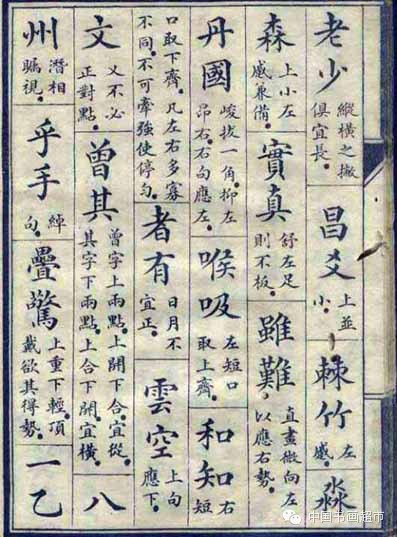 老少
縱橫之撇
俱宜長。
昌爻
上並
小。
棘竹
左
慼。
淼
森
上小左
慼兼備。
實真
舒左足
則不板。
雖難
直畫微向左
以應右勢。
丹國
峻拔一角抑左
昂右。右句應左。
喉吸
左短口
取上齊。
和知
右
短
口取下齊。凡左右多寡
不同。不可牽強使停勻。
者有
日月不
宜正。
雲空
上句
應下。
文
乂不必
正對點。
曾其
曾字上兩點。上開下合。宜從。
其字下兩點。上合下開。宜橫。
八
州
潛相
矚視。
乎手
綽
句。
疊驚
上重下輕。頂
戴欲其得勢。
一乙
中国书画超市